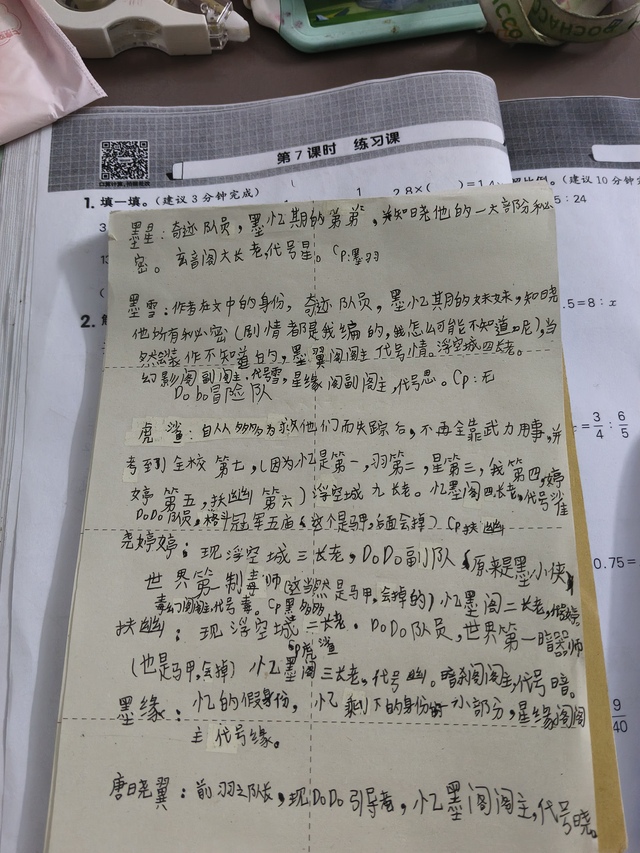 第7课时 练习课
口算计算，快速核验
1. 填一填。(建议3分钟完成)
2.8×( )=1
比例。(建议10分钟
5:24
.5=8:x
=3/4:6/5
0.75=
9/40
墨星：奇迹队员，墨忆期的弟弟，并知晓他的一大部分秘
密。玄音阁大长老，代号星。Cp:墨羽
墨雪：作者在文中的身份，奇迹队员，墨忆其月的妹妹，知晓
他所有秘密(剧情都是我编的，我怎么可能不知道呢)，当
然会装作不知道白的，墨翼阁阁主代号情。浮空城四长老。
幻影阁副阁主，代号雪，星缘阁副阁主，代号思。Cp:无
DoDo冒险队
虎鲨：自从多多为救他们而失踪后，不再全靠武力用事，并
考到全校第七，(因为忆是第一，羽第二，星第三，我第四，婷
婷第五，扶幽第六)浮空城九长老。忆墨阁四长老，代号
DoDo队员，格斗冠军五庙(这个是马甲，后面会掉)Cp扶幽
尧婷婷：现浮空城三长老，DoDo副队(原来是墨小侠)
世界第一制毒师(这当然是马甲，会掉的)忆墨阁二长老，代号婷。
毒幻阁阁主，代号毒。Cp墨多多
扶幽：现浮空城二长老。DoDo队员，世界第一暗器师
Cp虎鲨
(也是马甲，会掉)忆墨阁三长老，代号幽。暗刹阁阁主，代号暗。
墨缘：忆的假身份，忆乘刂下的身份的一小部分，星缘阁阁
主代号缘。
唐晓翼：前羽之队长，现DoDo引导者，忆墨阁阁主，代号晓。